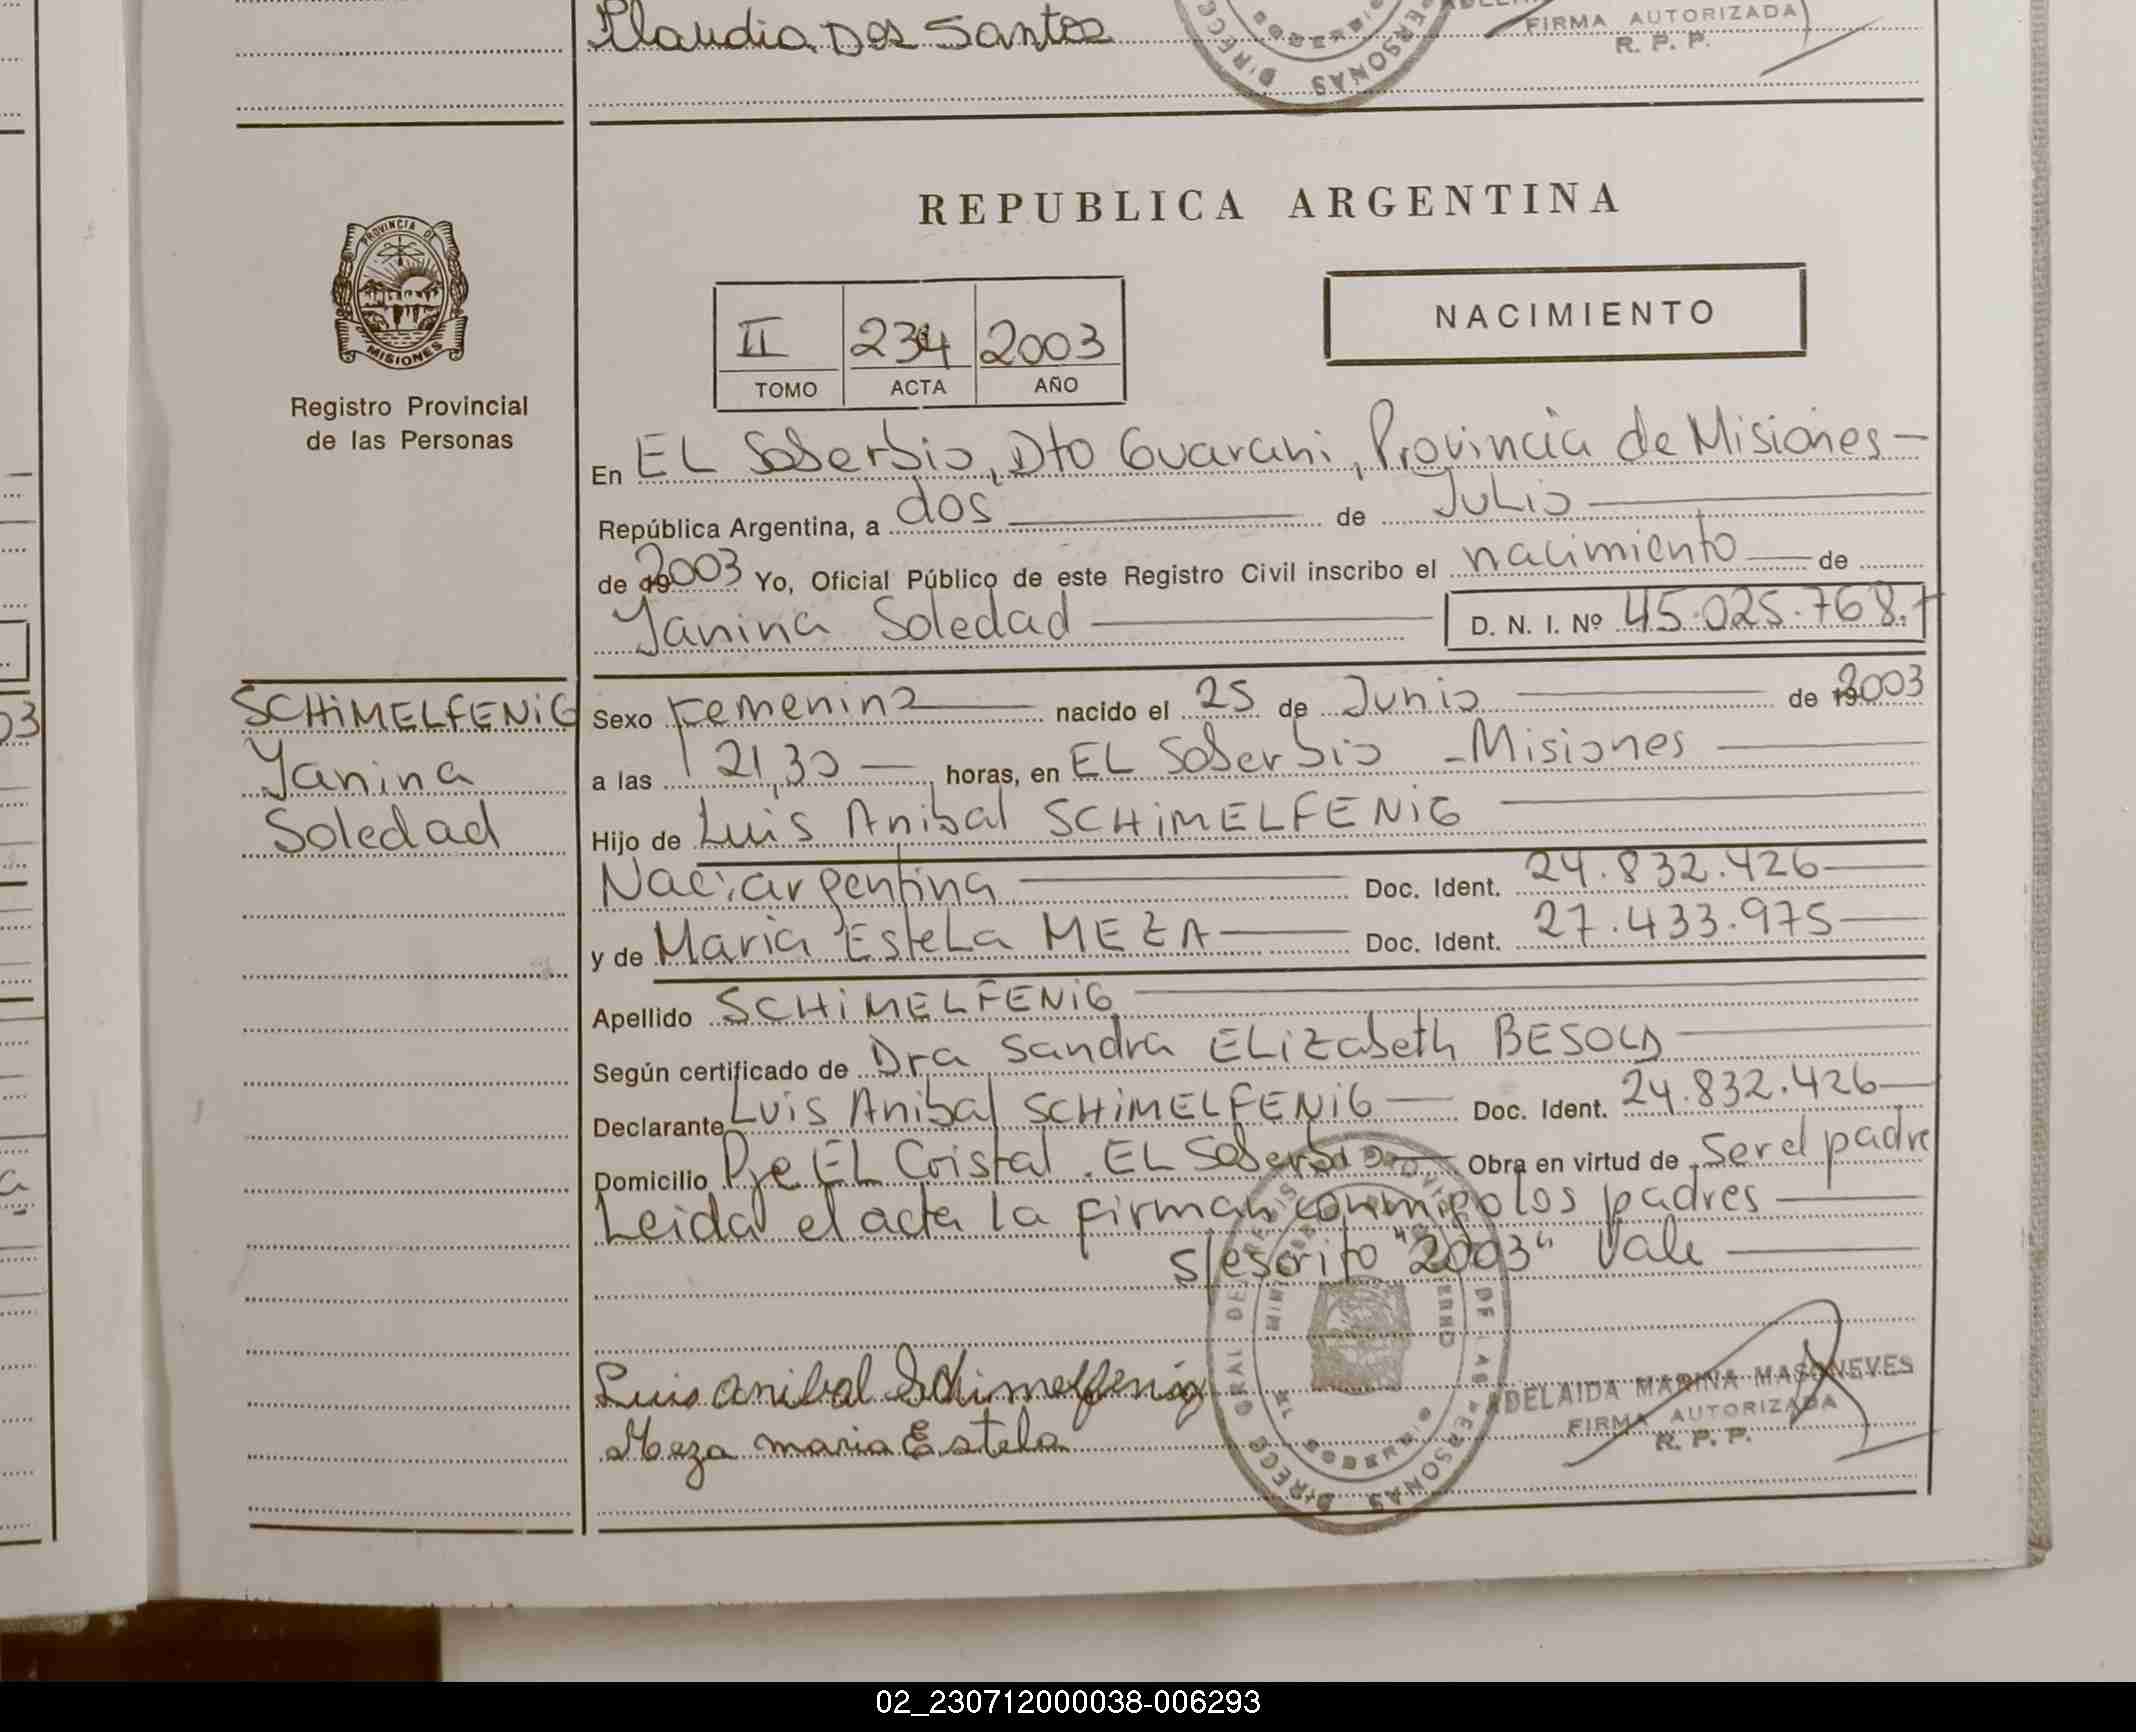 Claudia Dos Santos
FIRMA AUTORIZADA
R. P. P.
PERSONAS
REPUBLICA ARGENTINA
PROVINCIA DE
MISIONES
Registro Provincial
de las Personas
NACIMIENTO
II 234 2003
TOMO ACTA AÑO
En EL Soberbio, Dto Guarani, Provincia de Misiones
República Argentina, a dos de Julio
de 2003 Yo, Oficial Público de este Registro Civil inscribo el nacimiento de
Yanina Soledad D. N. I. Nº 45.025.768.
SCHiMELFENiG
Yanina
Soledad
Sexo Femenino nacido el 25 de Junio de 2003
a las 21,30 horas, en EL Soberbio - Misiones
Hijo de Luis Anibal SCHiMELFENiG
Nac: argentina Doc. Ident. 24.832.426
y de Maria Estela MEZA Doc. Ident. 27.433.975
Apellido SCHiMELFENiG
Según certificado de Dra Sandra ELizabeth BESOLD
Declarante Luis Anibal SCHiMELFENiG Doc. Ident. 24.832.426
Domicilio Pje EL Cristal. EL Soberbio Obra en virtud de ser el padre
Leida el acta la firman conmigo los padres
s/escrito "2003" Vale
Luis anibal Schimelfenig
Meza maria Estela
ADELAIDA MARINA MASONEVES
FIRMA AUTORIZADA
R. P. P.
02_230712000038-006293